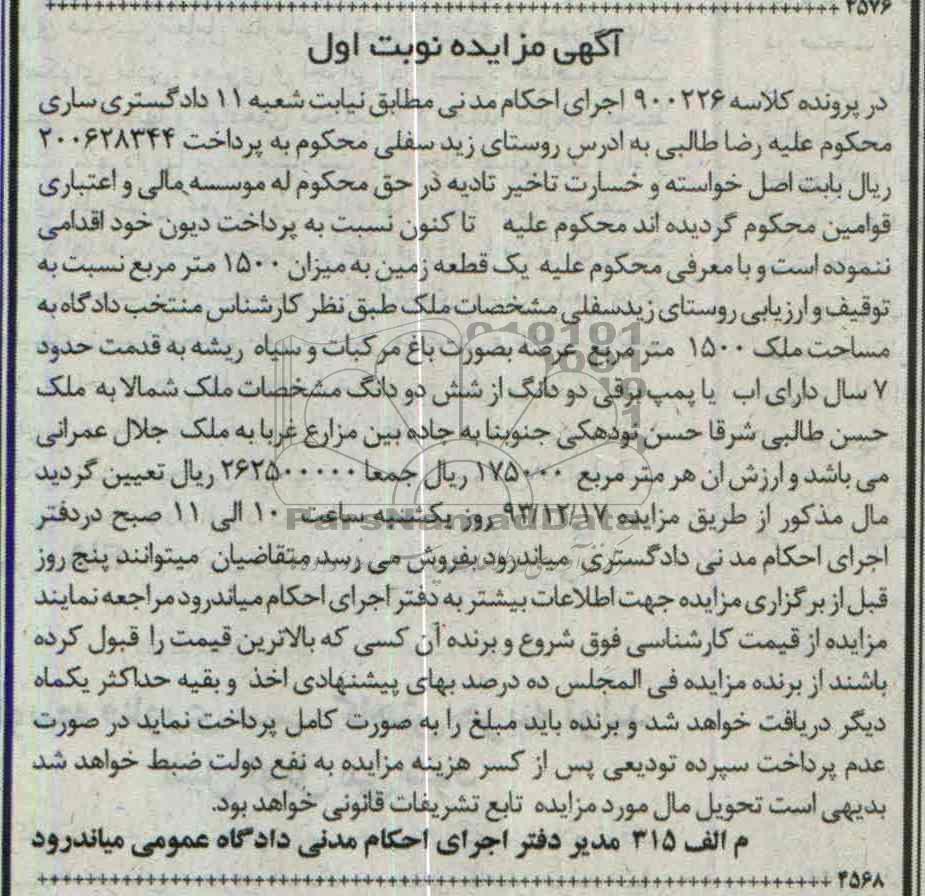 ۲۵۷۶
آگهی مزایده نوبت اول
در پرونده کلاسه ۹۰۰۲۲۶ اجرای احکام مدنی مطابق نیابت شعبه ۱۱ دادگستری ساری
محکوم علیه رضا طالبی به ادرس روستای زید سفلی محکوم به پرداخت ۲۰۰۶۲۸۳۴۴
ریال بابت اصل خواسته و خسارت تاخیر تادیه در حق محکوم له موسسه مالی و اعتباری
قوامین محکوم گردیده اند محکوم علیه تا کنون نسبت به پرداخت دیون خود اقدامی
ننموده است و با معرفی محکوم علیه یک قطعه زمین به میزان ۱۵۰۰ متر مربع نسبت به
توقیف و ارزیابی روستای زیدسفلی مشخصات ملک طبق نظر کارشناس منتخب دادگاه به
مساحت ملک ۱۵۰۰ متر مربع عرصه بصورت باغ مرکبات و سیاه ریشه به قدمت حدود
۷ سال دارای اب یا پمپ برقی دو دانگ از شش دو دانگ مشخصات ملک شمالا به ملک
حسن طالبی شرقا حسن نودهکی جنوبنا به جاده بین مزارع غربا به ملک جلال عمرانی
می باشد و ارزش ان هر متر مربع ۱۷۵۰۰۰ ریال جمعا ۲۶۲۵۰۰۰۰۰ ریال تعیین گردید
مال مذکور از طریق مزایده ۹۳/۱۲/۱۷ روز یکشنبه ساعت ۱۰ الی ۱۱ صبح دردفتر
اجرای احکام مد نی دادگستری میاندرود بفروش می رسد متقاضیان میتوانند پنج روز
قبل از برگزاری مزایده جهت اطلاعات بیشتر به دفتر اجرای احکام میاندرود مراجعه نمایند
مزایده از قیمت کارشناسی فوق شروع و برنده آن کسی که بالاترین قیمت را قبول کرده
باشند از برنده مزایده فی المجلس ده درصد بهای پیشنهادی اخذ و بقیه حداکثر یکماه
دیگر دریافت خواهد شد و برنده باید مبلغ را به صورت کامل پرداخت نماید در صورت
عدم پرداخت سپرده تودیعی پس از کسر هزینه مزایده به نفع دولت ضبط خواهد شد
بدیهی است تحویل مال مورد مزایده تابع تشریفات قانونی خواهد بود.
م الف ۳۱۵ مدیر دفتر اجرای احکام مدنی دادگاه عمومی میاندرود
۲۵۶۸
ParsNamadData